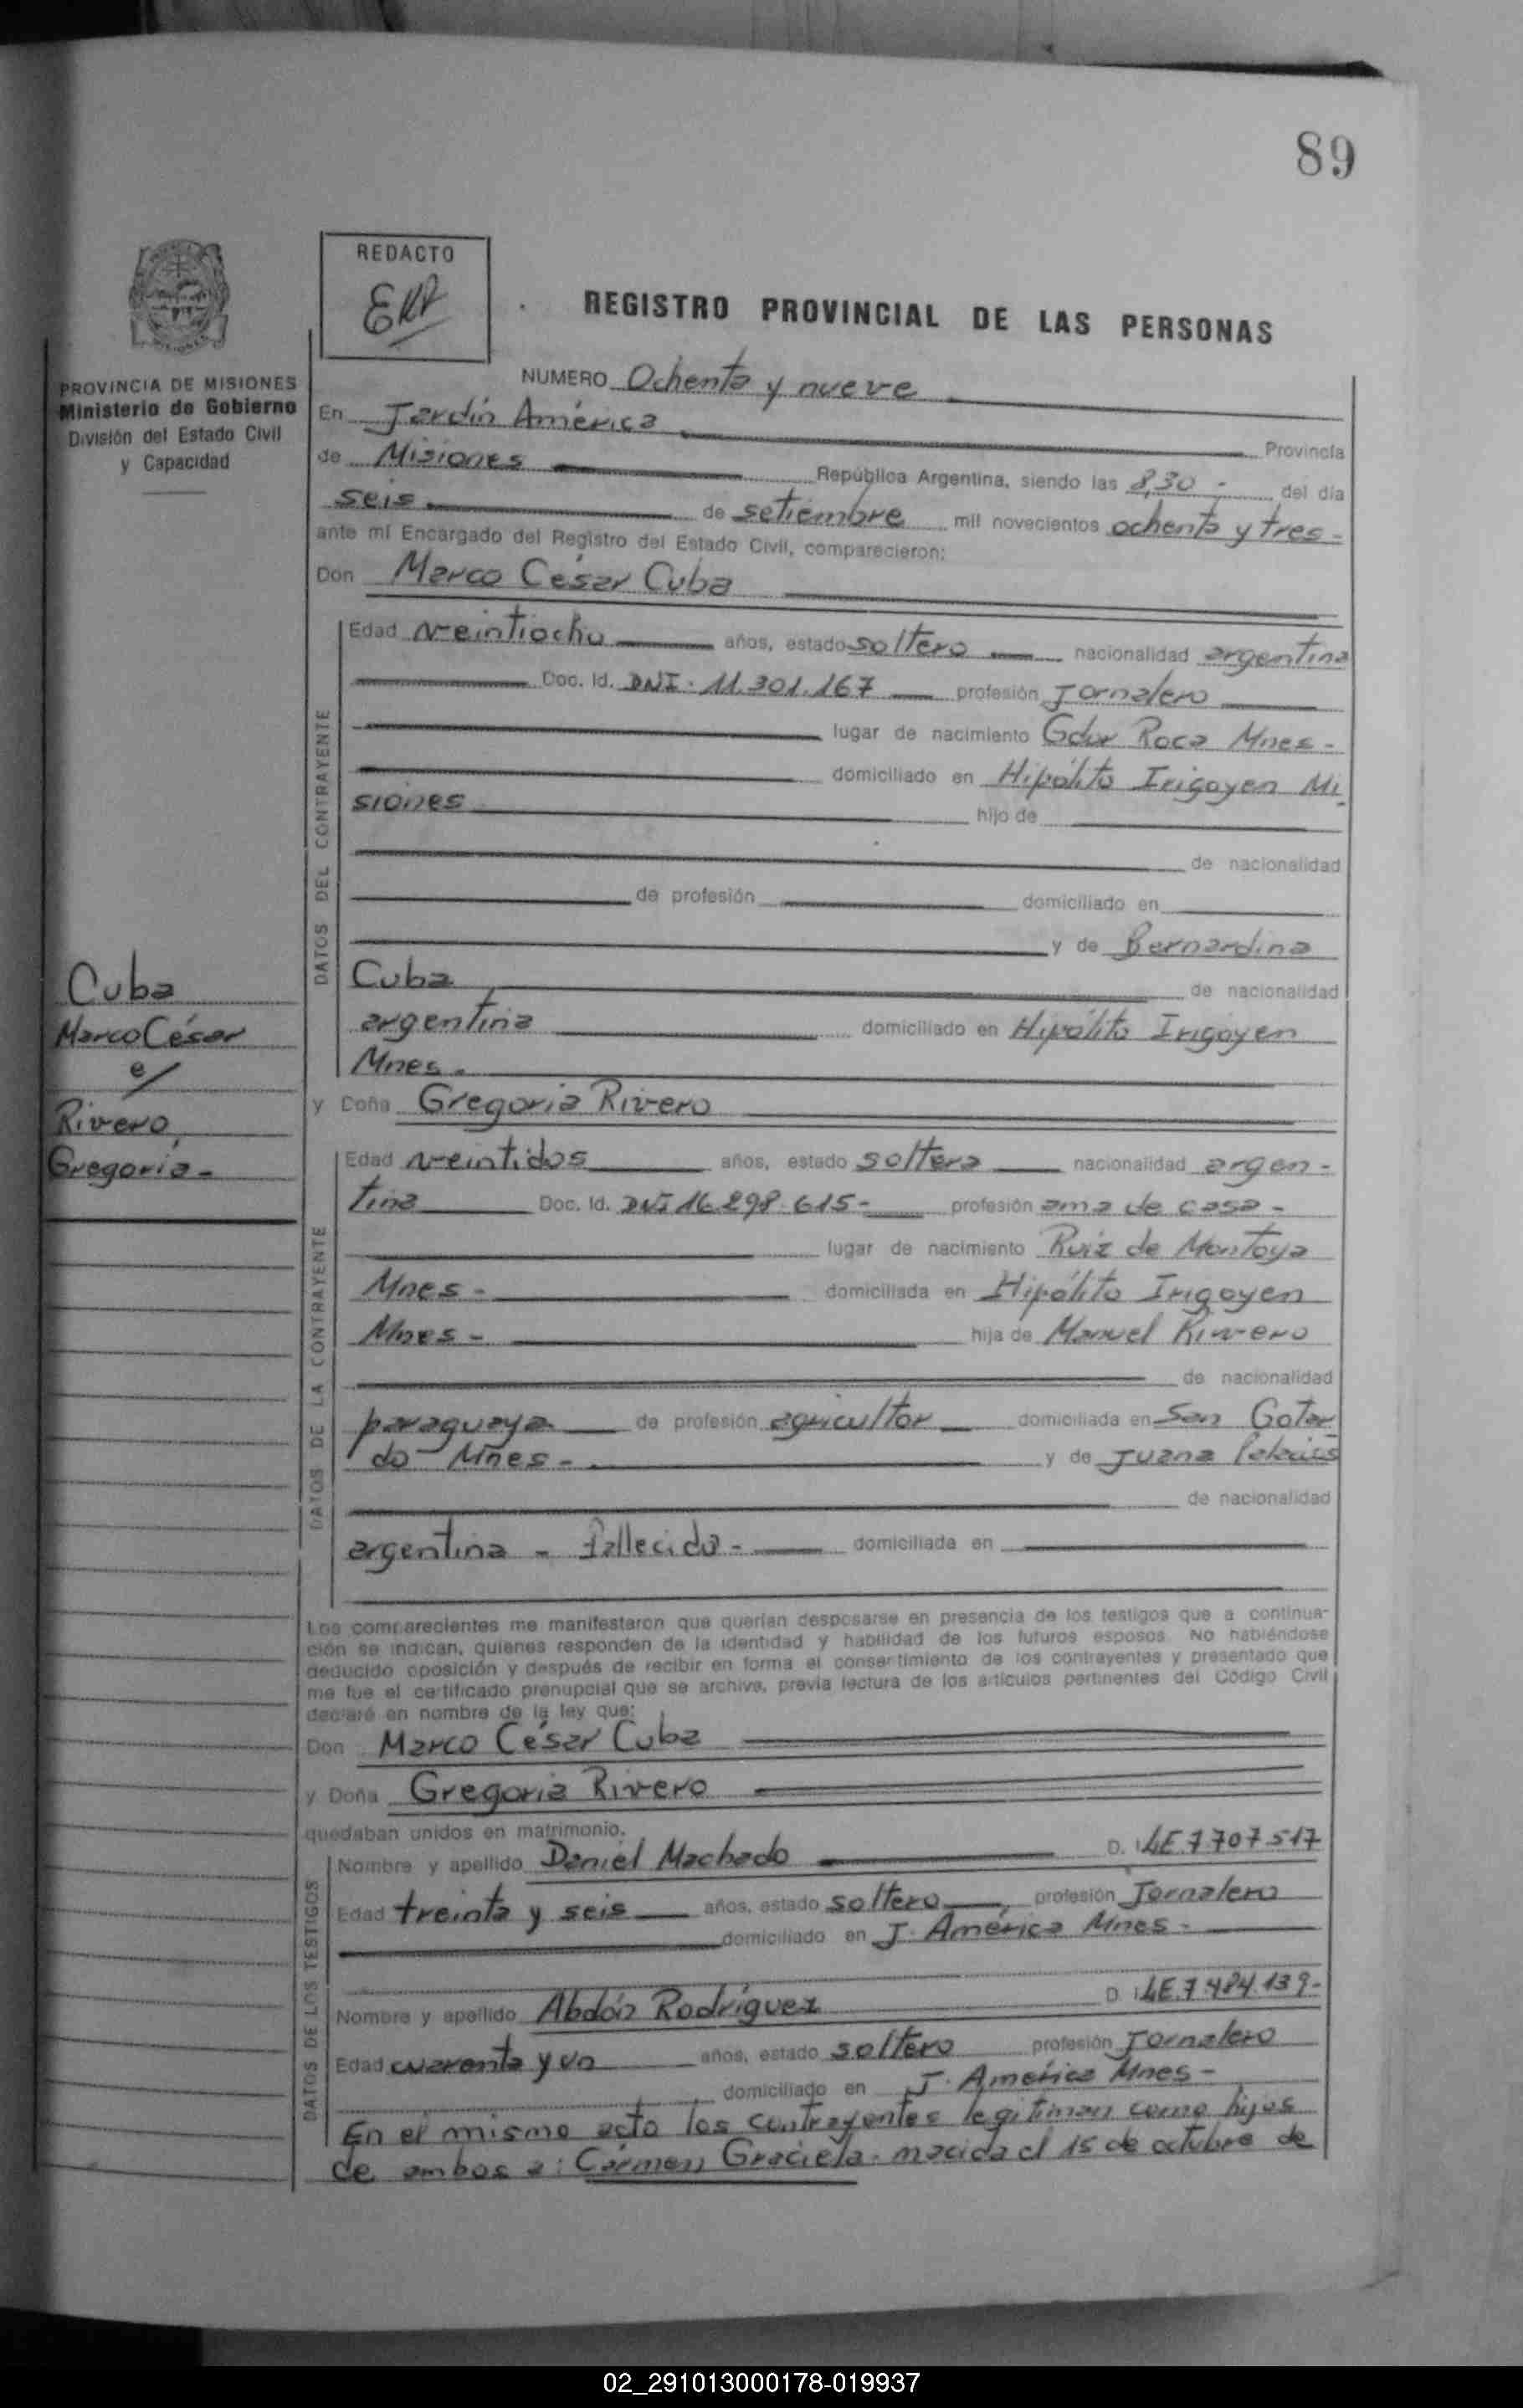 89
REDACTO
REGISTRO PROVINCIAL DE LAS PERSONAS
PROVINCIA DE MISIONES
Ministerio de Gobierno
División del Estado Civil
y Capacidad
NUMERO Ochenta y nueve
En Jardín América Provincia
de Misiones República Argentina, siendo las 8,30 - del día
seis de setiembre mil novecientos ochenta y tres -
ante mí Encargado del Registro del Estado Civil, comparecieron:
Don Marco César Cuba
DATOS DEL CONTRAYENTE
Edad veintiocho años, estado soltero nacionalidad argentina
Doc. Id. DNI. 11.301.167 profesión Jornalero
lugar de nacimiento Gdor Roca Mnes -
domiciliado en Hipólito Irigoyen Mi
siones hijo de
de nacionalidad
de profesión domiciliado en
y de Bernardina
Cuba de nacionalidad
argentina domiciliado en Hipólito Irigoyen
Mnes.
Cuba
Marco César
e/
Rivero,
Gregoria -
y Doña Gregoria Rivero
DATOS DE LA CONTRAYENTE
Edad veintidos años, estado soltera nacionalidad argen -
tina Doc. Id. DNI 16.298.615 - profesión ama de casa -
lugar de nacimiento Ruiz de Montoya
Mnes - domiciliada en Hipólito Irigoyen
Mnes - hija de Manuel Rivero
de nacionalidad
paraguaya de profesión agricultor domiciliada en San Gotar
do Mnes - y de Juana
de nacionalidad
argentina - fallecida - domiciliada en
Los comparecientes me manifestaron que querían desposarse en presencia de los testigos que a continua-
ción se indican, quienes responden de la identidad y habilidad de los futuros esposos. No habiéndose
deducido oposición y después de recibir en forma el consentimiento de los contrayentes y presentado que
me fue el certificado prenupcial que se archiva, previa lectura de los artículos pertinentes del Código Civil
declaré en nombre de la ley que:
Don Marco César Cuba
y Doña Gregoria Rivero
quedaban unidos en matrimonio.
DATOS DE LOS TESTIGOS
Nombre y apellido Daniel Machado D. I. LE.7.707.517
Edad treinta y seis años, estado soltero profesión Jornalero
domiciliado en J. América Mnes -
Nombre y apellido Abdón Rodríguez D. I. LE.7.484.139 -
Edad cuarenta y un años, estado soltero profesión Jornalero
domiciliado en J. América Mnes -
En el mismo acto los contrayentes legitiman como hijos
de ambos a: Cármen Graciela. nacida el 15 de octubre de
02_291013000178-019937